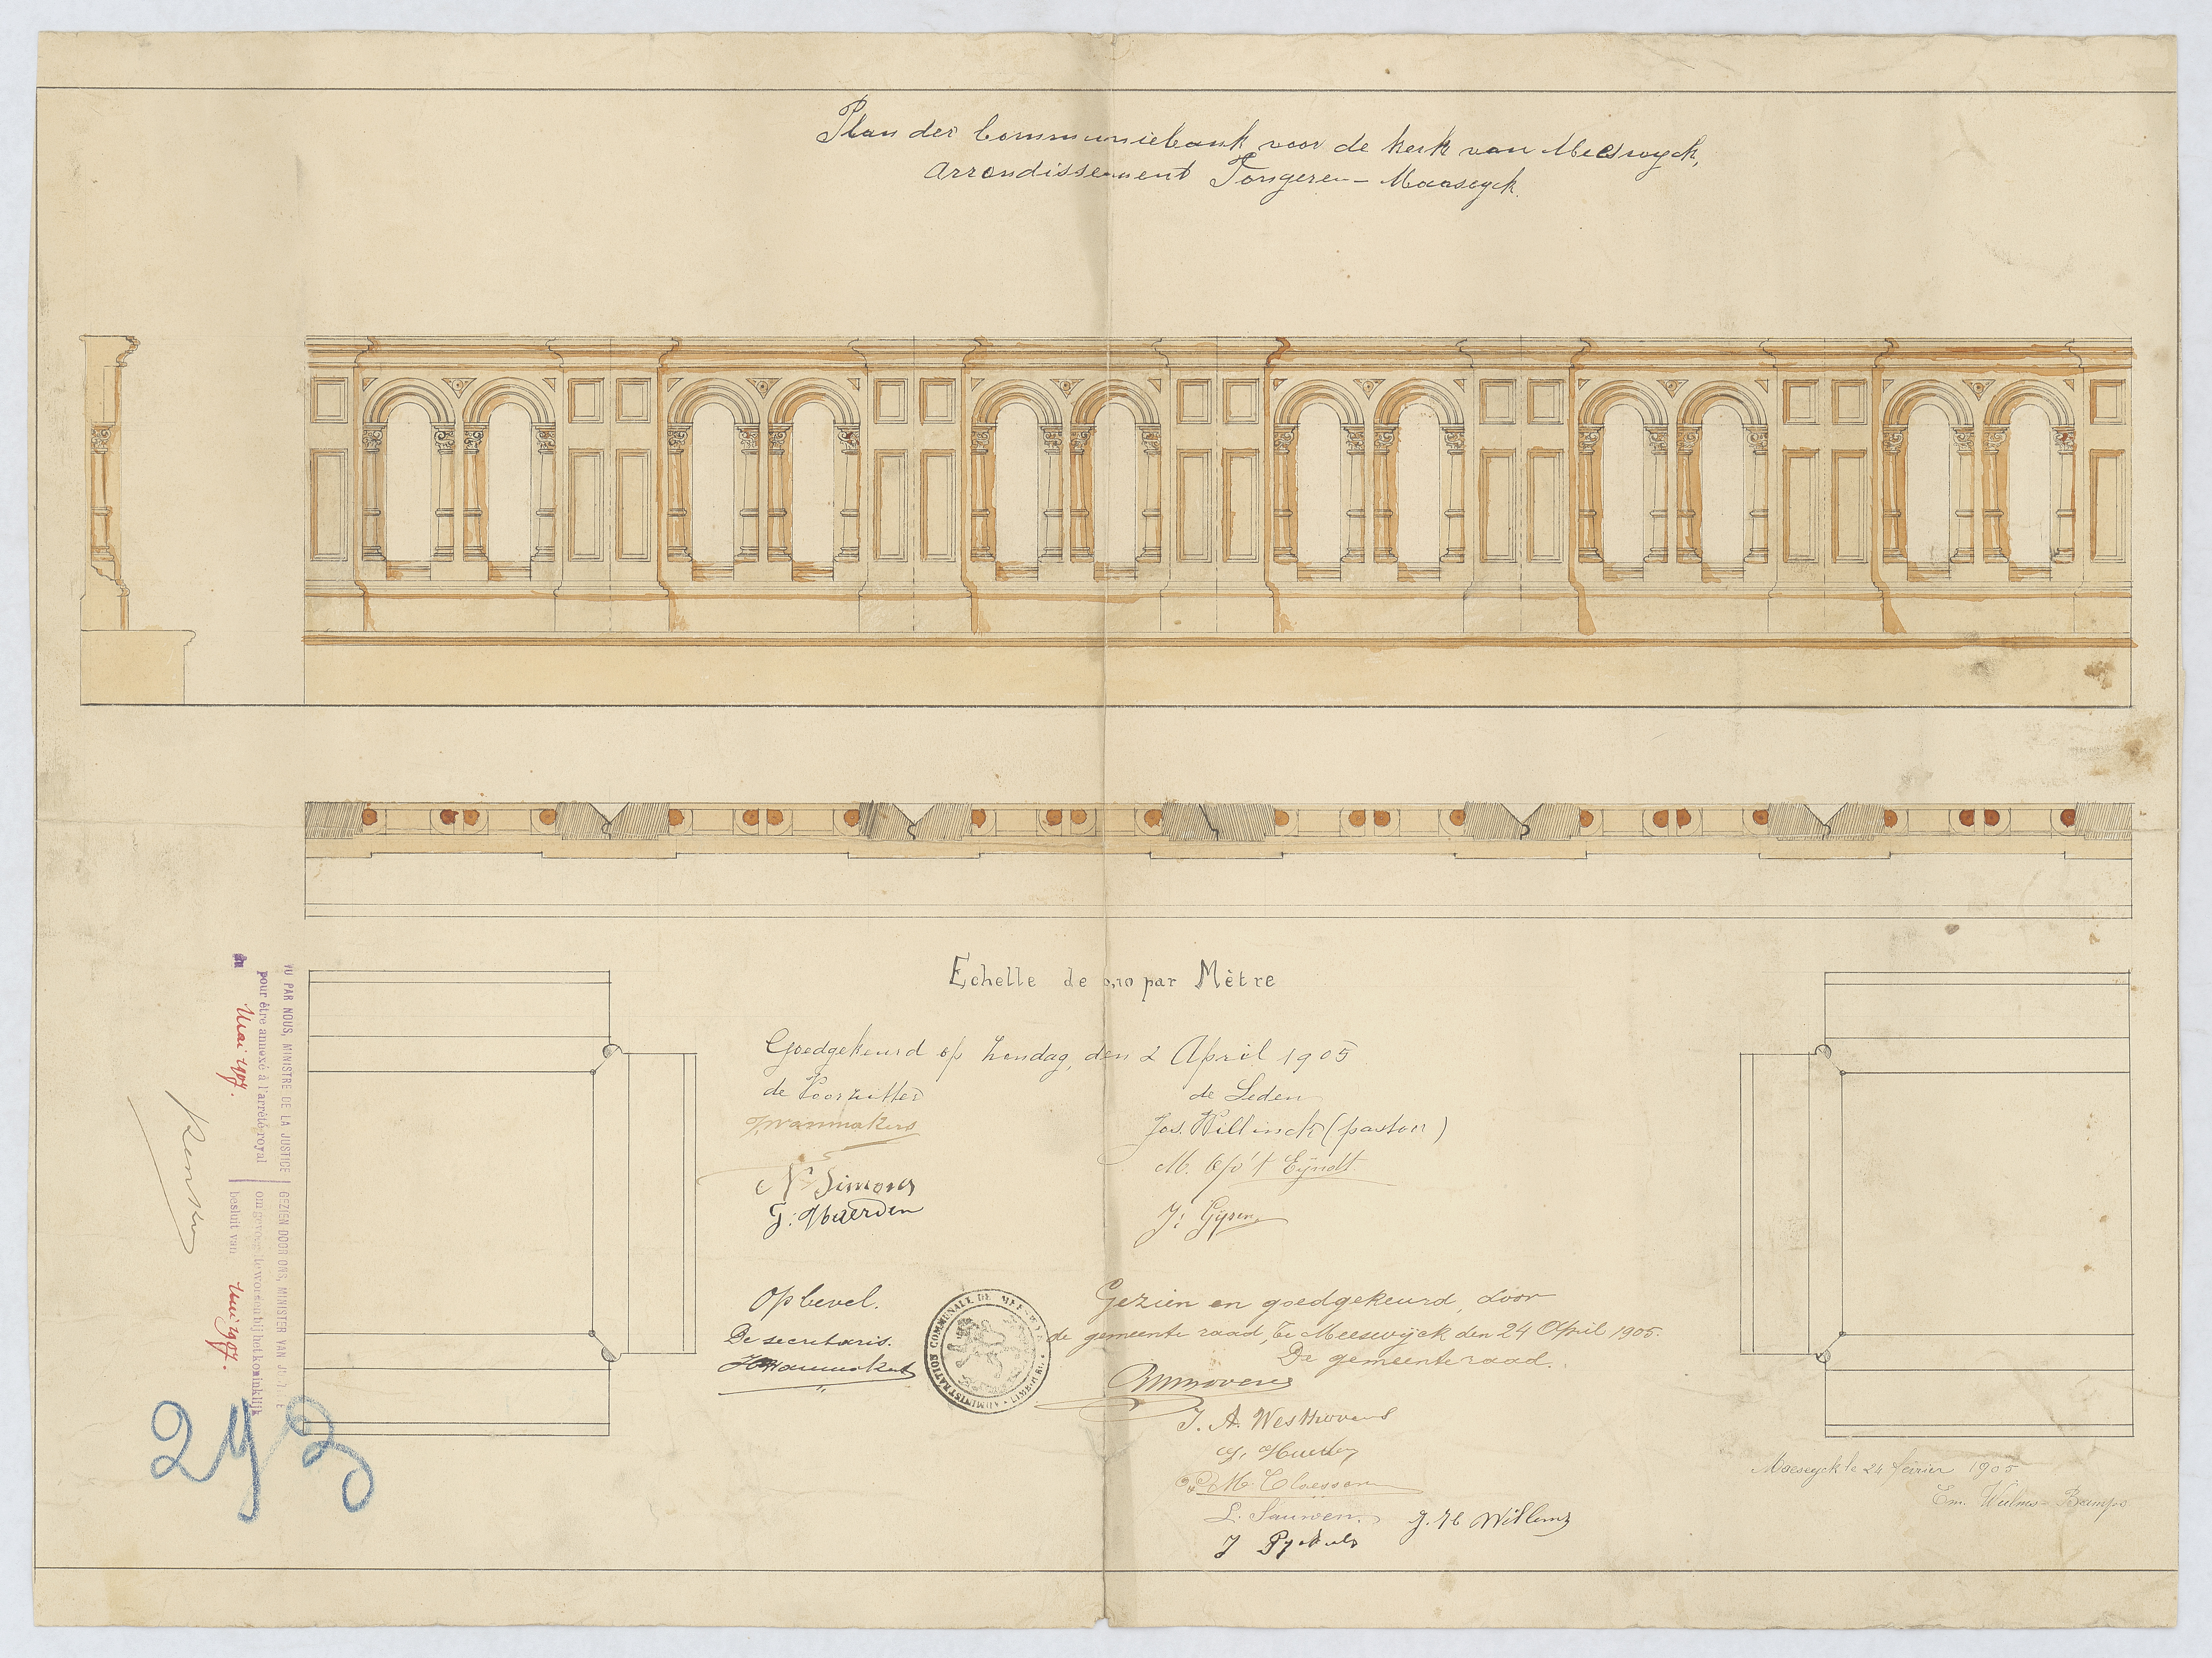 Plan der Communiebank voor de kerk van Meeswyck,
arrondissement Tongeren – Maaseyck.
Echelle de 0,10 par Mètre
Goedgekeurd op Zondag, den 2 April 1905
de Voorzitter
de Leden
Jos. Willinck (pastoor)
M. Op't Eyndt
N Simons
J. Gysen
Op bevel.
De secretaris.
ADMINISTRATION COMMUNALE DE MEESWYCK
Gezien en goedgekeurd, door
de gemeente raad, te Meeswijck den 24 April 1905.
De gemeenteraad.
J. A. Westhovens
M. Claessen
L. Sauwen
J. H. Willems
Maeseyck le 24 février 1905
VU PAR NOUS, MINISTRE DE LA JUSTICE
pour être annexé à l'arrêté royal
du
Mai 1907.
GEZIEN DOOR ONS, MINISTER VAN JUSTITIE
om gevoegd te worden bij het koninklijk
besluit van
Mei 1907.
293